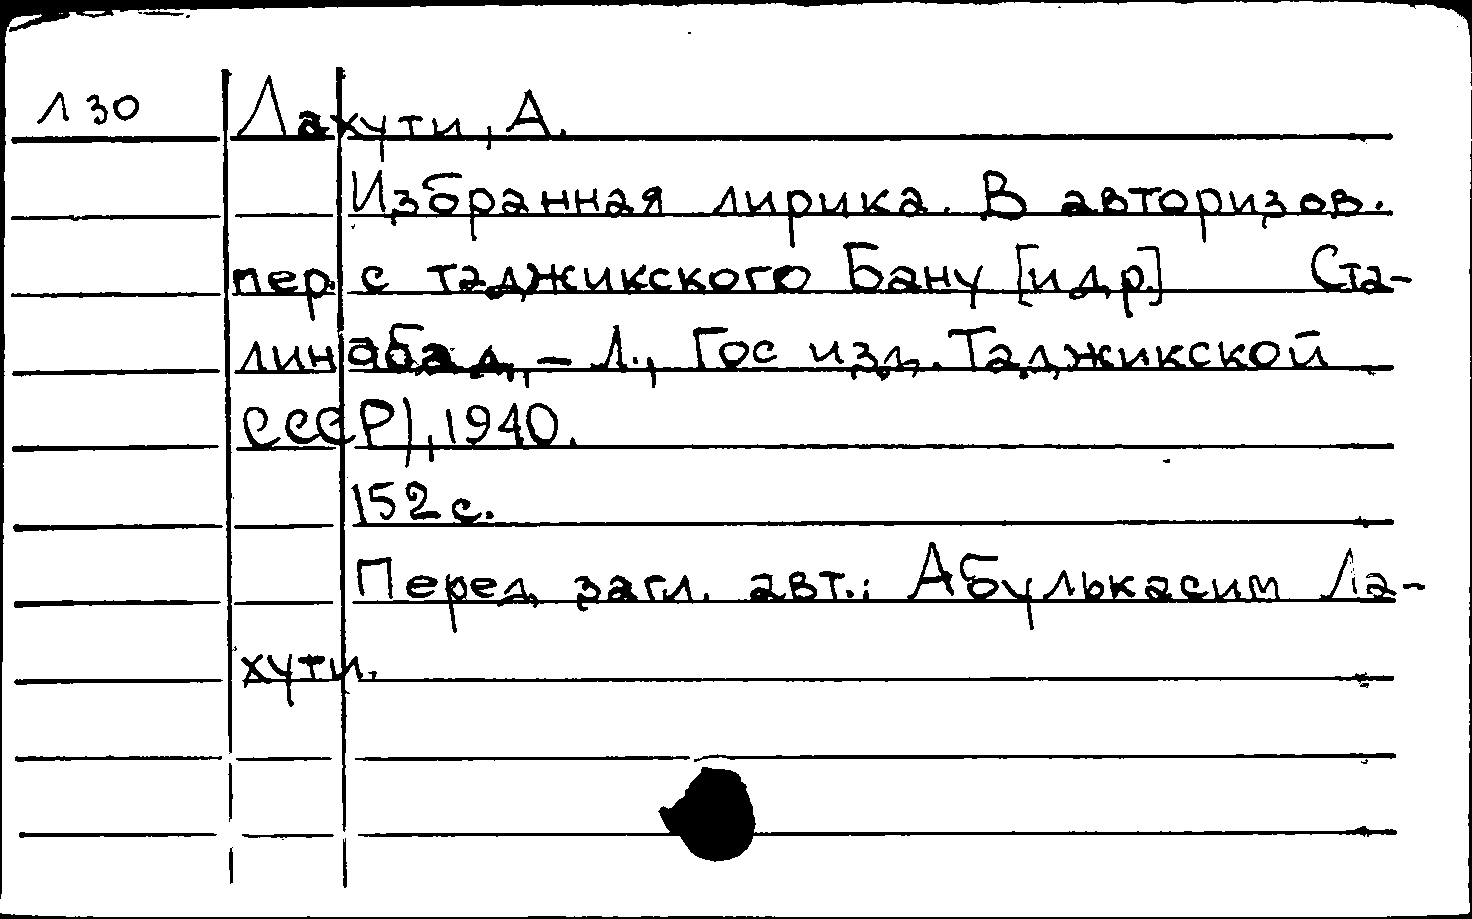 Л30 Лахути, А.
Избранная лирика. В авторизов.
пер. с таджикского Бану [и др.] Ста-
линабад, – Л., Гос изд. Таджикской
ССР), 1940.
152 с.
Перед загл. авт.: Абулькасим Ла-
хути.